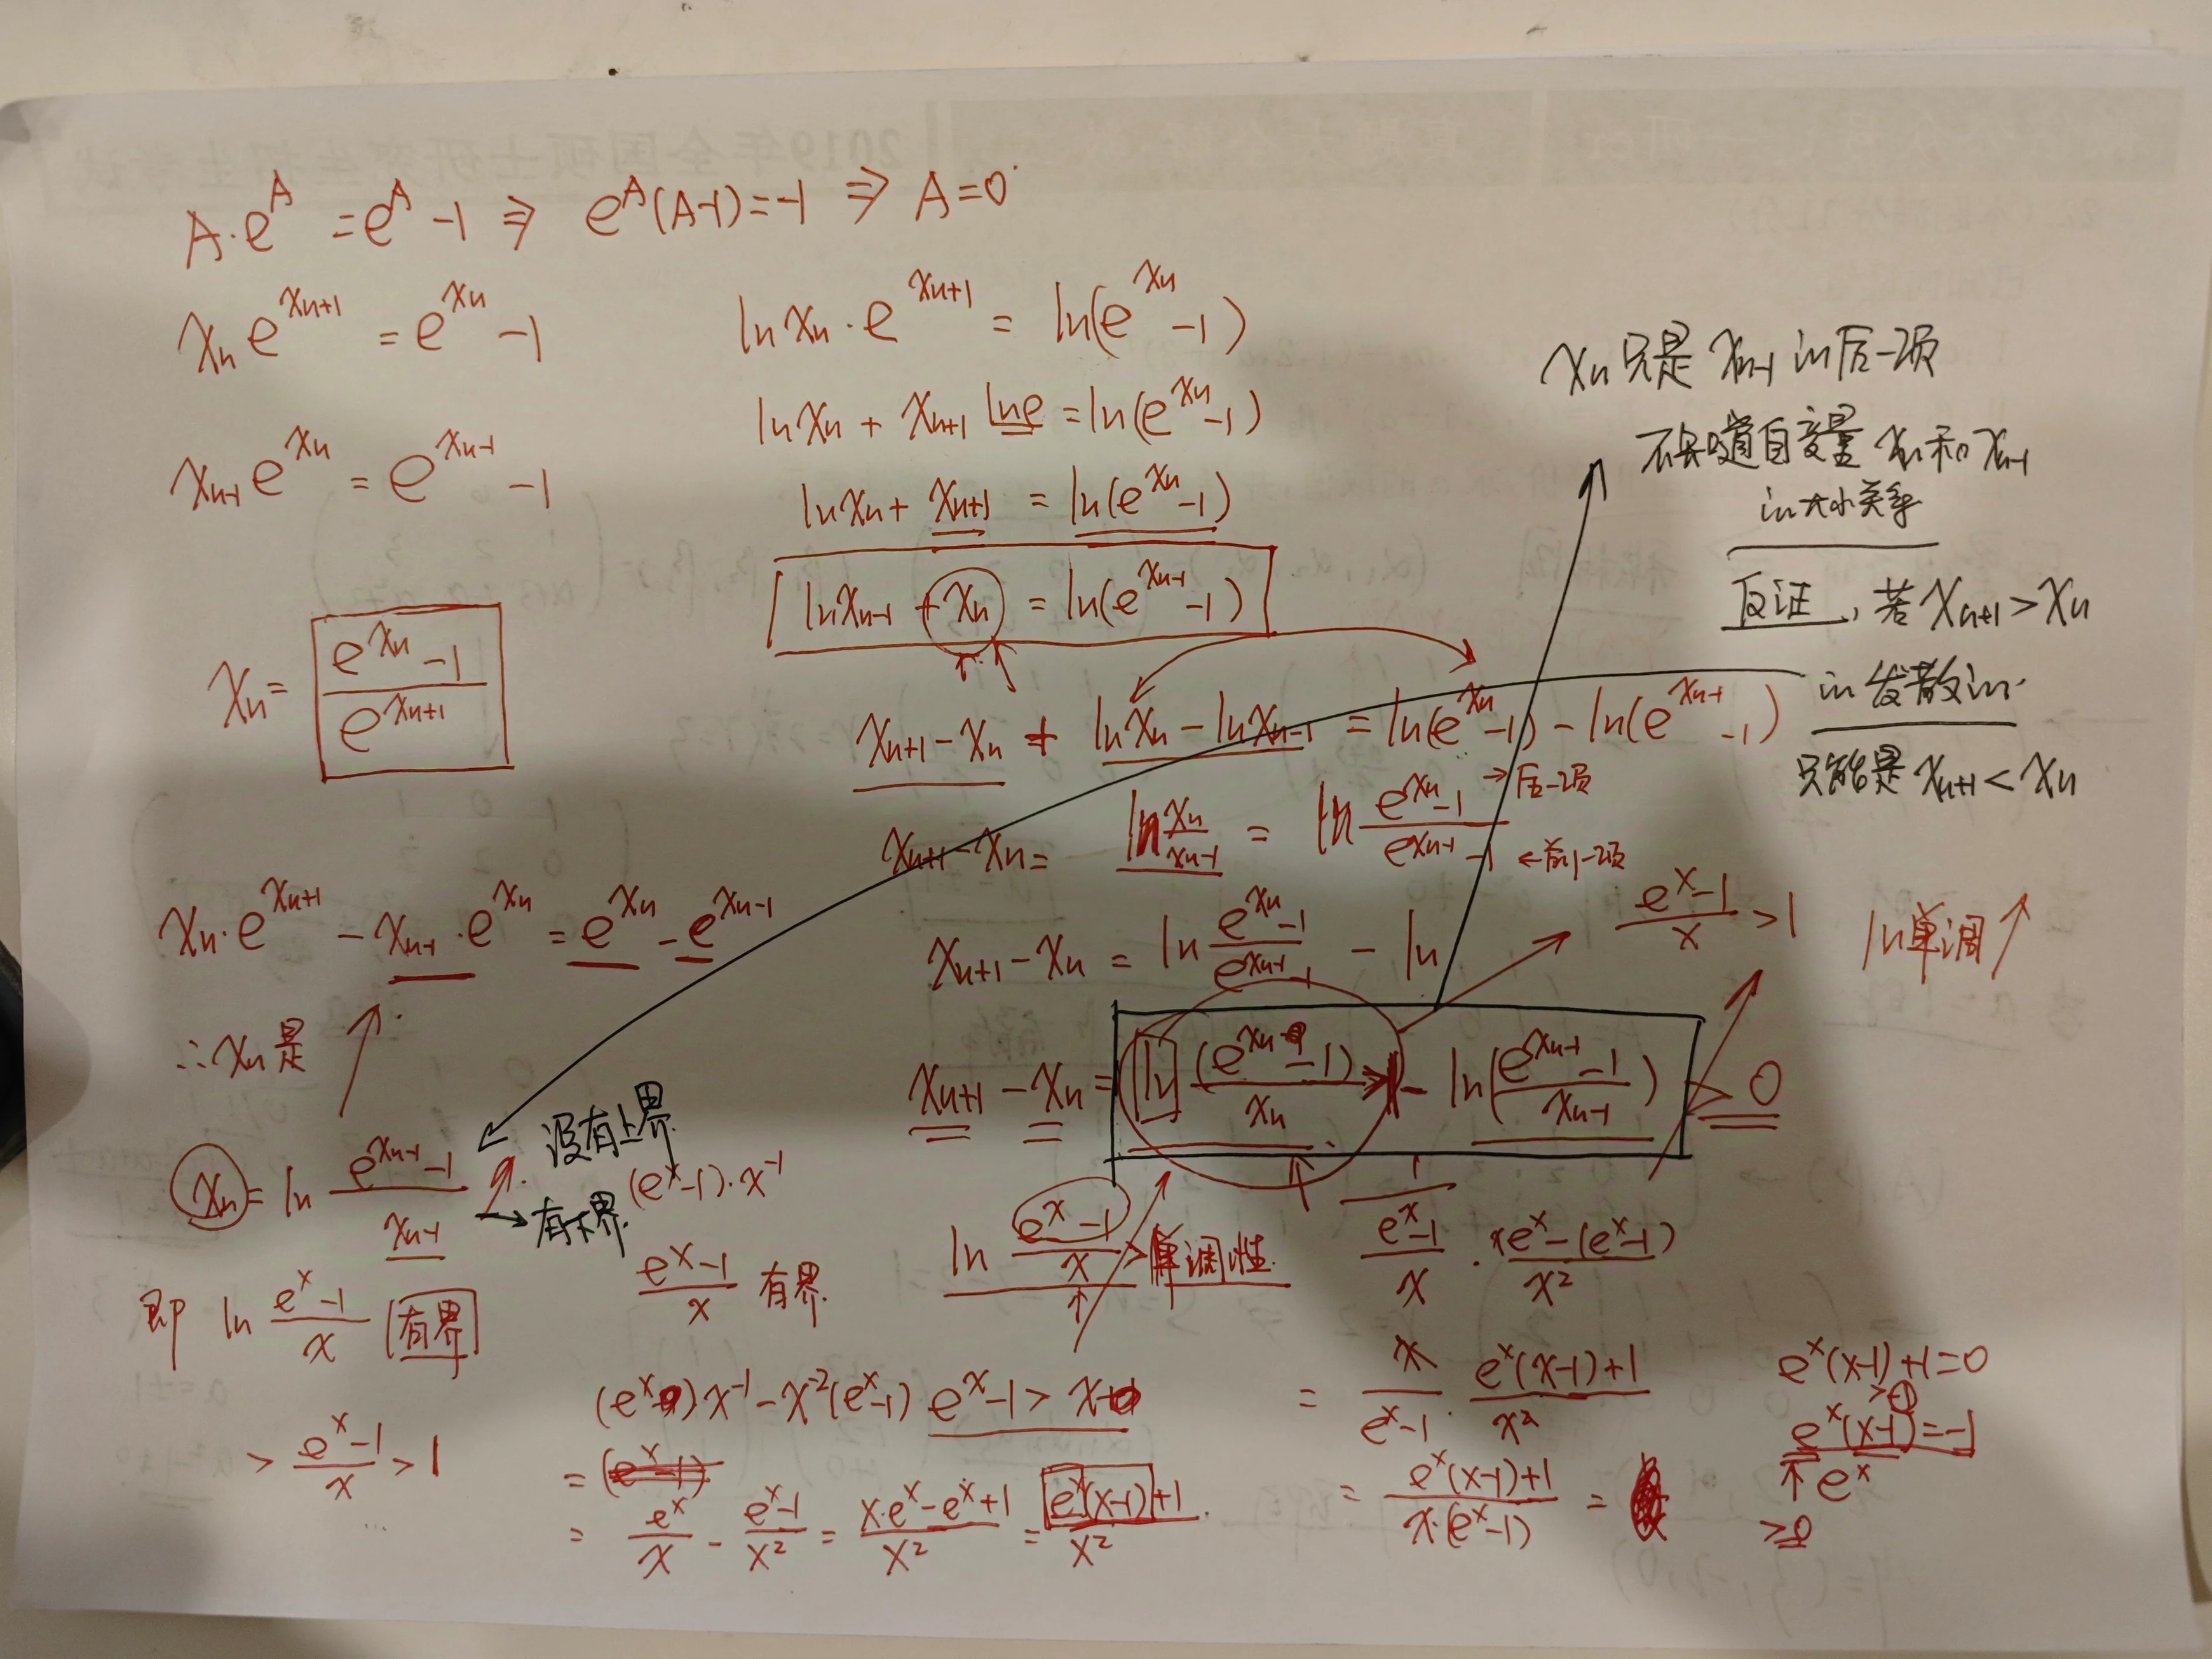 A·e^A = e^A - 1 ⇒ e^A(A-1) = -1 ⇒ A=0
x_n e^{x_{n+1}} = e^{x_n} - 1
x_{n-1} e^{x_n} = e^{x_{n-1}} - 1
x_n = \frac{e^{x_n} - 1}{e^{x_{n+1}}}
x_n·e^{x_{n+1}} - x_{n-1}·e^{x_n} = e^{x_n} - e^{x_{n-1}}
∴ x_n是
x_n = ln \frac{e^{x_{n-1}} - 1}{x_{n-1}}
没有上界
有下界
即 ln \frac{e^x - 1}{x} 有界
> \frac{e^x - 1}{x} > 1
ln x_n · e^{x_{n+1}} = ln(e^{x_n} - 1)
ln x_n + x_{n+1} ln e = ln(e^{x_n} - 1)
ln x_n + x_{n+1} = ln(e^{x_n} - 1)
ln x_{n-1} + x_n = ln(e^{x_{n-1}} - 1)
x_{n+1} - x_n + ln x_n - ln x_{n-1} = ln(e^{x_n} - 1) - ln(e^{x_{n-1}} - 1)
x_{n+1} - x_n = ln \frac{x_n}{x_{n-1}} = ln \frac{e^{x_n} - 1}{e^{x_{n-1}} - 1}
→后一项
←前一项
x_{n+1} - x_n = ln \frac{e^{x_n} - 1}{e^{x_{n-1}} - 1} - ln
\frac{e^x - 1}{x} > 1
ln单调↗
x_{n+1} - x_n = ln \frac{(e^{x_n} - 1)}{x_n} - ln(\frac{e^{x_{n-1}} - 1}{x_{n-1}}) > 0
(e^x - 1)·x^{-1}
\frac{e^x - 1}{x} 有界.
ln \frac{e^x - 1}{x} 单调性.
(e^x) x^{-1} - x^{-2}(e^x - 1)
e^x - 1 > x
= \frac{e^x}{x} - \frac{e^x - 1}{x^2} = \frac{x·e^x - e^x + 1}{x^2} = \frac{e^x(x-1) + 1}{x^2}
\frac{1}{\frac{e^x - 1}{x}} · \frac{xe^x - (e^x - 1)}{x^2}
= \frac{x}{e^x - 1} · \frac{e^x(x-1) + 1}{x^2}
= \frac{e^x(x-1) + 1}{x·(e^x - 1)} =
e^x(x-1) + 1 = 0
e^x(x-1) = -1
↑ e^x
≥0
x_n只是 x_{n-1} 的后一项
不知道自变量 x_n和x_{n-1}
的大小关系
反证, 若 x_{n+1} > x_n
的发散的.
只能是 x_{n+1} < x_n